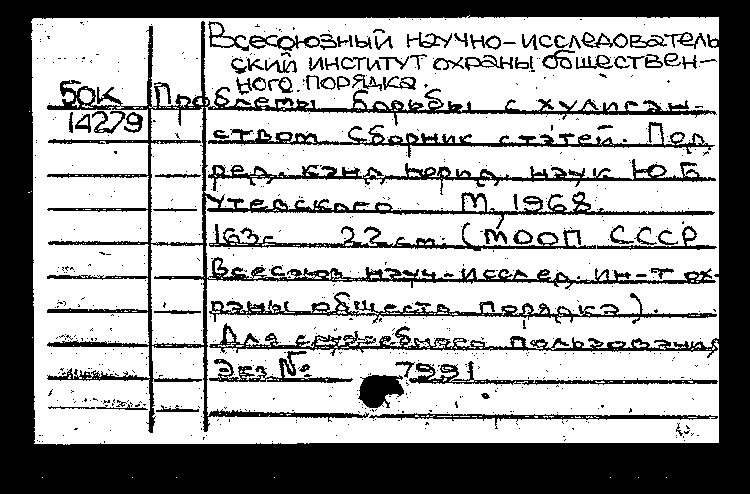 Всесоюзный научно-исследователь
ский институт охраны обществен-
ного порядка.
БОК Проблемы борьбы с хулиган-
14279 ством Сборник статей. Под
ред. канд юрид. наук Ю.Б
Утевского М, 1968.
163с 22 см. (МООП СССР
Всесоюз науч-исслед. ин-т ох-
раны обществ порядка).
Для служебного пользования
Экз № 7991